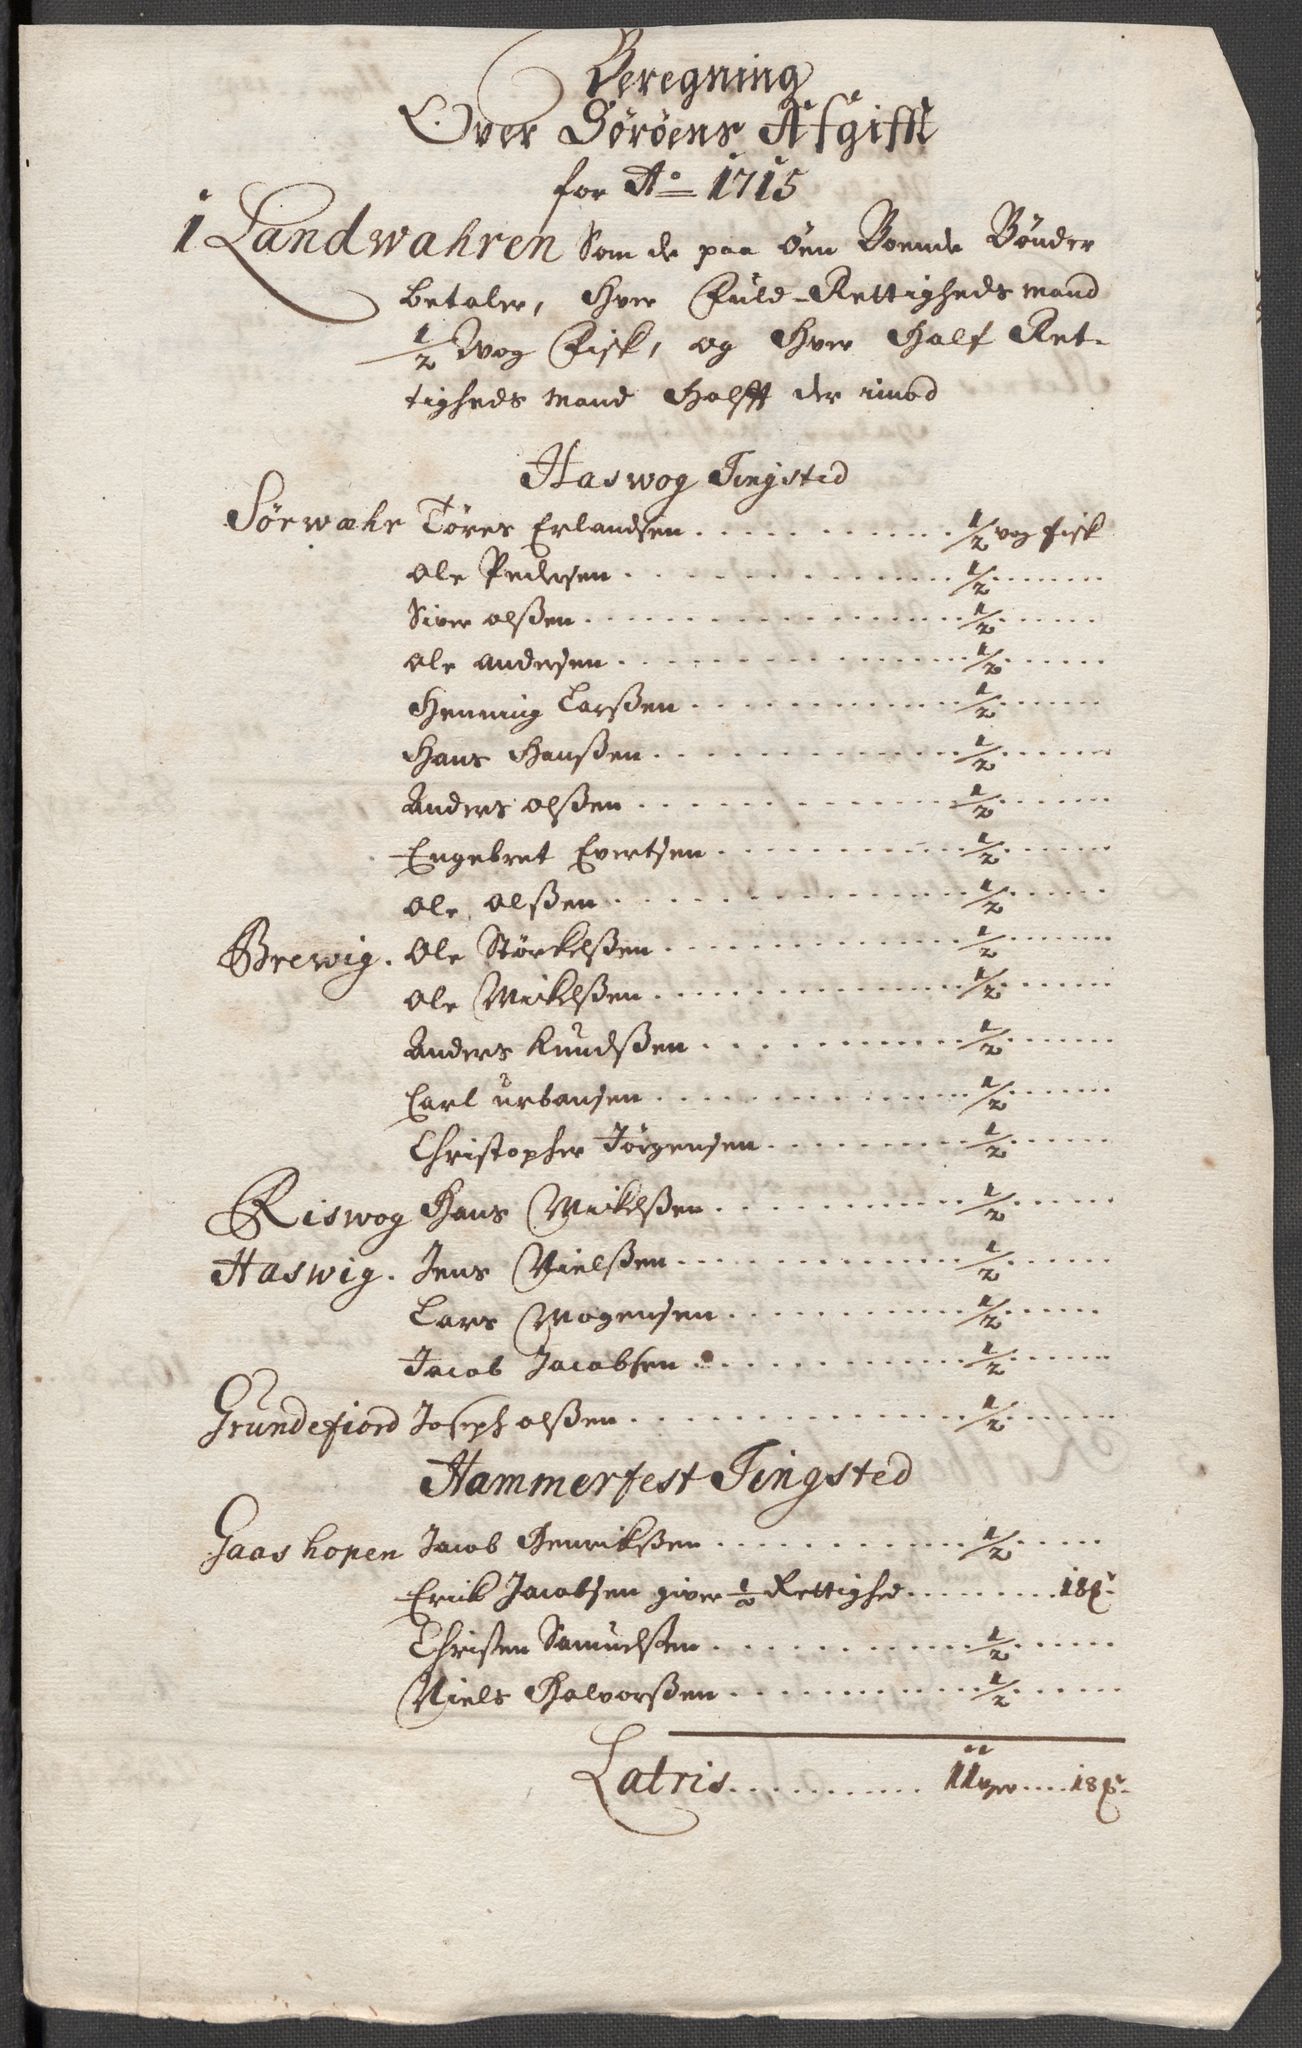 Beregning
Over Sørøens Afgifft
for Ao 1715
1 Landwahren Som de paa Øen Boende Bønder
betaler, Hver Fuld-Rettigheds mand
1/2 Wog Fisk, og Hver Half Ret-
tigheds mand Halfft der imod
Haswog Tingsted
Sørwæhr Töres Erlandsen . . . . . . . . . . 1/2 vog fisk
Ole Pedersen . . . . . . . . . . 1/2 . . . . .
Siver olßen . . . . . . . . . . 1/2 . . . . .
Ole Andersen . . . . . . . . . . 1/2 . . . . .
Henning Larßen . . . . . . . . . . 1/2 . . . . .
Hans Hanßen . . . . . . . . . . 1/2 . . . . .
Anders olßen . . . . . . . . . . 1/2 . . . . .
Engebret Evertsen . . . . . . . . . . 1/2 . . . . .
Ole olßen . . . . . . . . . . 1/2 . . . . .
Brewig. Ole Störkelßen . . . . . . . . . . 1/2 . . . . .
Ole Mickelßen . . . . . . . . . . 1/2 . . . . .
Anders Knudßen . . . . . . . . . . 1/2 . . . . .
Carl urbansen . . . . . . . . . . 1/2 . . . . .
Christopher Jörgensen . . . . . . . . . . 1/2 . . . . .
Riswog Hans Mickelßen . . . . . . . . . . 1/2 . . . . .
Haswig. Jens Nielßen . . . . . . . . . . 1/2 . . . . .
Lars Mogensen . . . . . . . . . . 1/2 . . . . .
Jacob Jacobsen . . . . . . . . . . 1/2 . . . . .
Grundefiord Joseph olßen . . . . . . . . . . 1/2 . . . . .
Hammerfest Tingsted
Gaashopen Jacob Henrikßen . . . . . . . . . . 1/2 . . . . .
Erick Jacobsen giver 1/2 Rettighed . . . . . . . . 18 ℔
Christen Samuelßen . . . . . . . . . . 1/2 . . . . .
Niels Halvorßen . . . . . . . . . . 1/2 . . . . .
Latris . . . . . . . . . . 11 wger . . . . 18 ℔